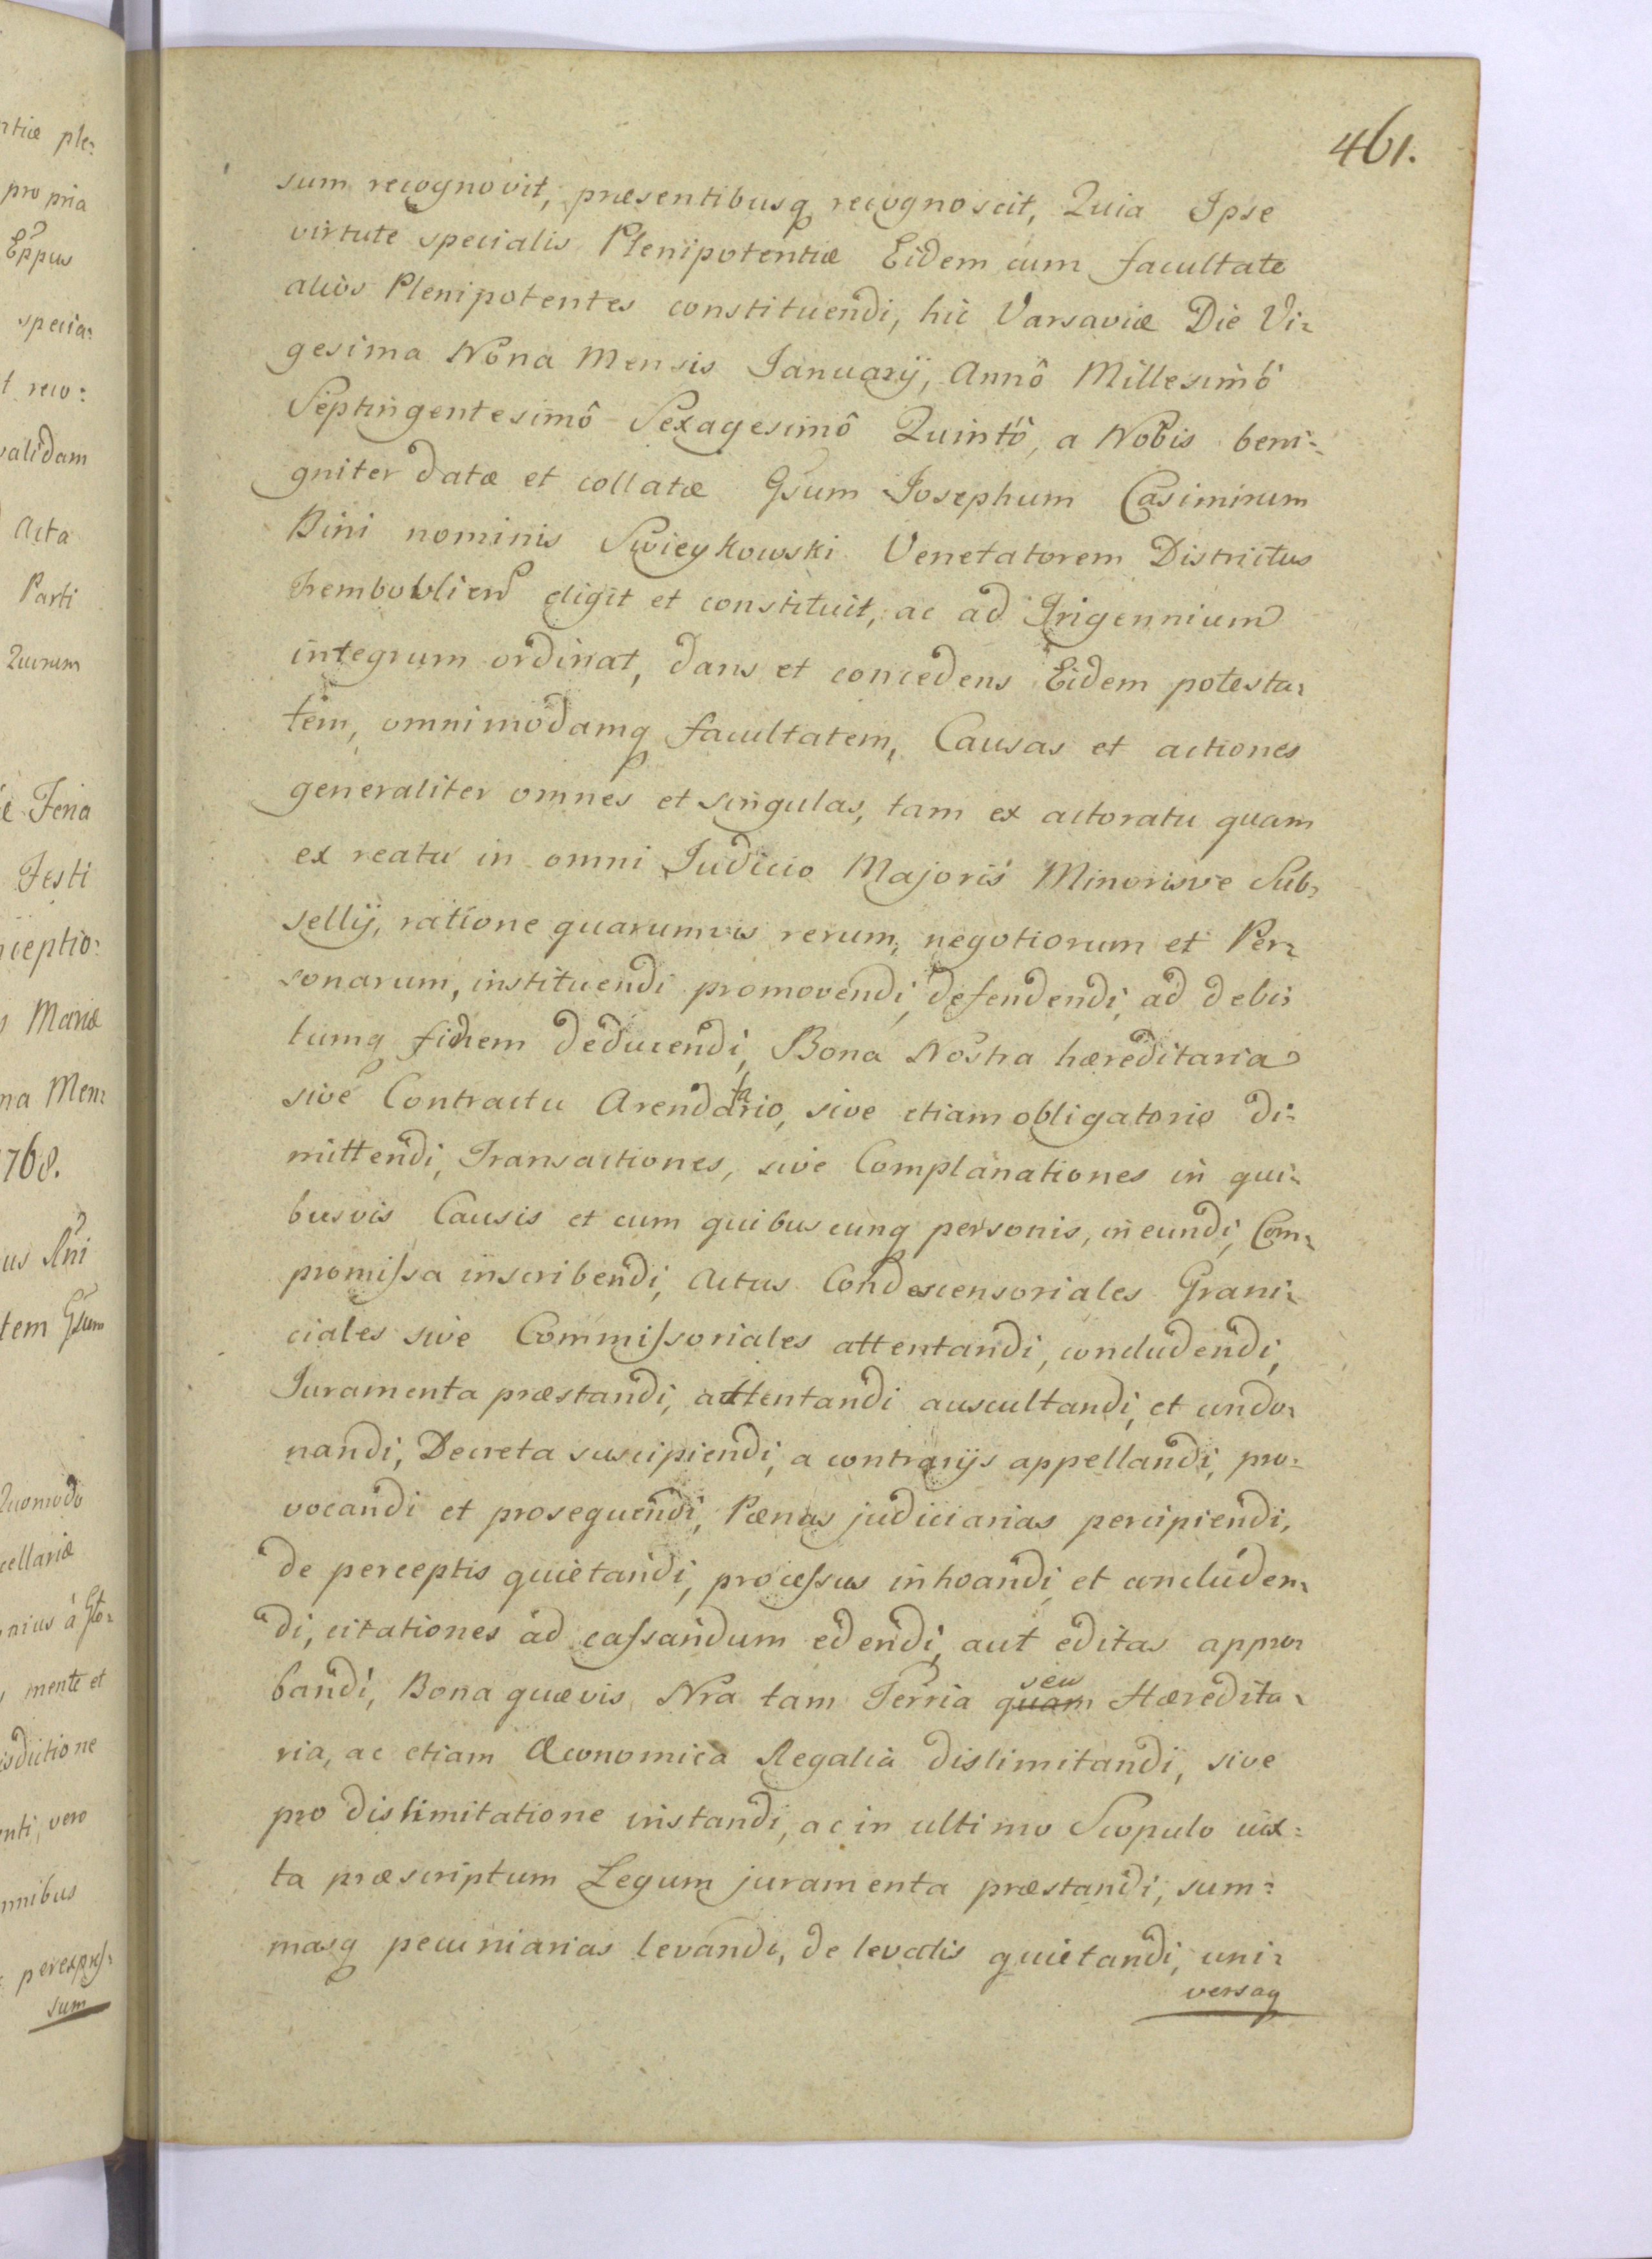 ntiæ ple:
propria
Eppus
specia:
t reco:
validam
Acta
Parti
Quorum
Feria
Festi
ceptio:
Mariæ
na Men:
1768.
us Rni
tem Gsum
Quomodo
cellariæ
mente et
isdictione
enti, vero
mnibus
perexpress:
sum
461.
sum recognovit, præsentibusq recognoscit, Quia Ipse
virtute specialis Plenipotentiæ Eidem cum facultate
alios Plenipotentes constituendi, hic Varsaviæ Die Vi:
gesima Nona Mensis Januarij, Annô Millesimô
Septingentesimô Sexagesimô Quintô, a Nobis beni:
gniter datæ et collatæ Gsum Josephum Casimirum
Bini nominis Swieykowski Venetatorem Districtus
Trembowlien eligit et constituit, ac ad Trigennium
integrum ordinat, dans et concedens Eidem potesta:
tem, omnimodamq facultatem, Causas et actiones
generaliter omnes et singulas, tam ex actoratu quam
ex reatu in omni Judicio Majoris Minorisve Sub:
sellij, ratione quarumvis rerum, negotiorum et Per:
sonarum, instituendi promovendi, defendendi, ad debi:
tumq finem deducendi, Bona Nostra hæreditaria
sive Contractu Arendatario, sive etiam obligatorio di:
mittendi, Transactiones, sive Complanationes in qui:
busvis Causis et cum quibuscunq personis, ineundi, Com:
promissa inscribendi, Actus Condescensoriales Grani:
ciales sive Commissoriales attentandi, concludendi,
Juramenta præstandi, attentandi auscultandi, et condo:
nandi, Decreta suscipiendi, a contrarijs appellandi, pro:
vocandi et prosequendi, Pænas judiciarias percipiendi,
de perceptis quietandi, processus inhoandi et concluden:
di, citationes ad cassandum edendi, aut editas appro:
bandi, Bona quævis Nra tam Terria quam seu Hæredita:
ria, ac etiam Œconomica Regalia dislimitandi, sive
pro dislimitatione instandi, ac in ultimo Scopulo iux:
ta præscriptum Legum juramenta præstandi, sum:
masq pecuniarias levandi, de levatis quietandi, uni:
versaq